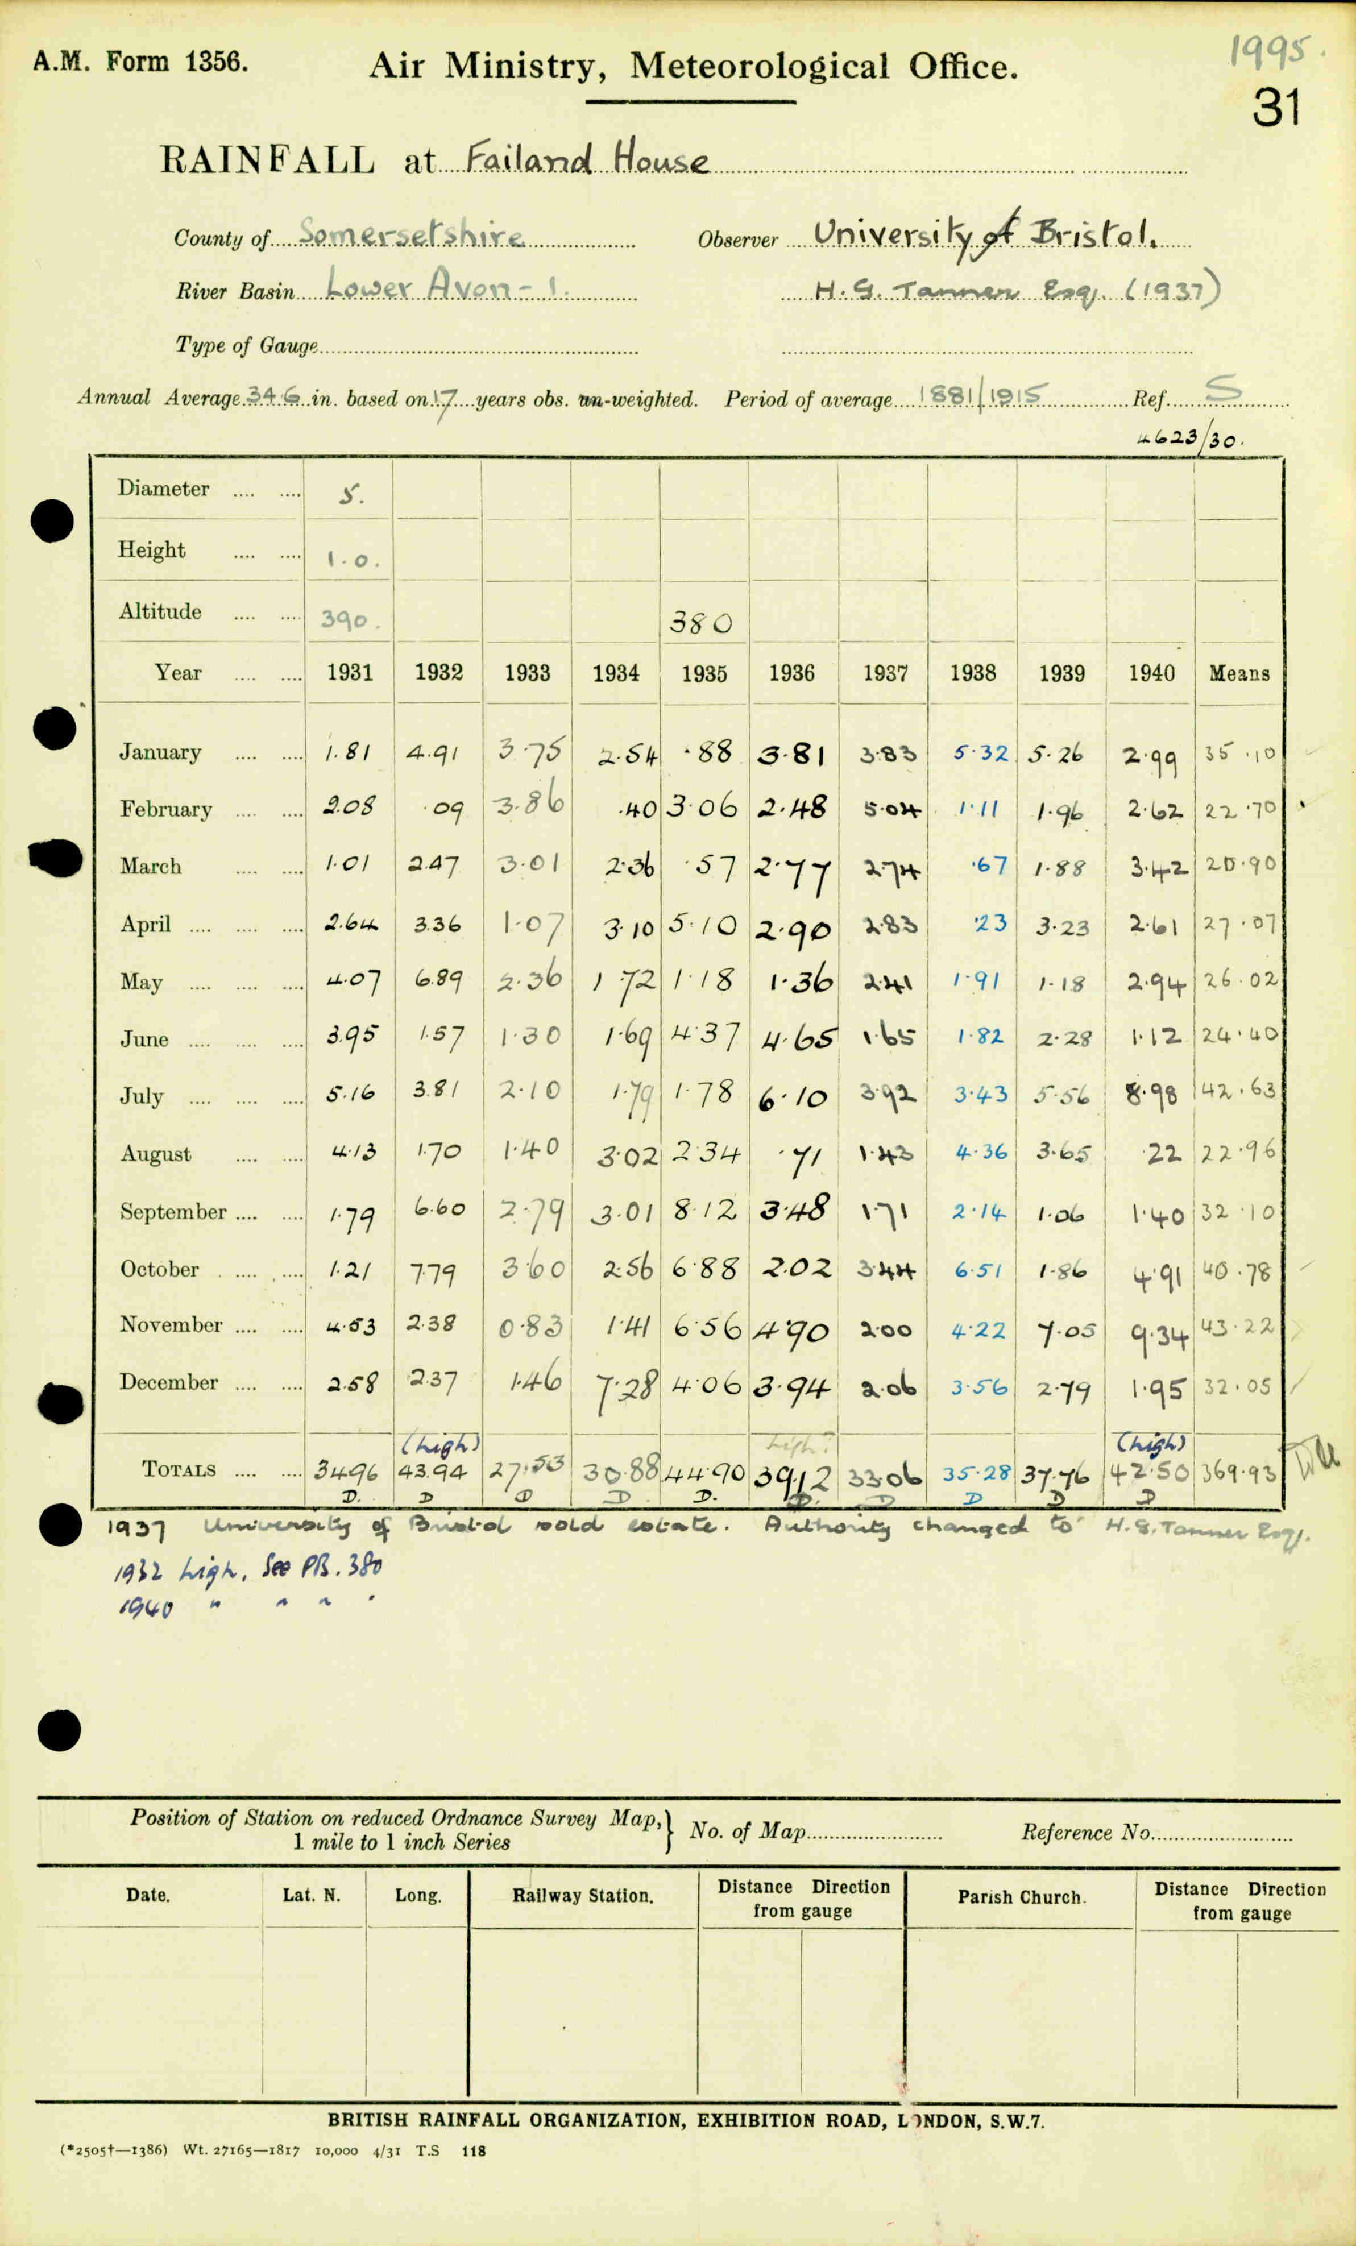 1995.
A.M. Form 1356. Air Ministry, Meteorological Office.
31
RAINFALL at Failand House
County of Somersetshire Observer University of Bristol.
River Basin Lower Avon - 1. H.G. Tanner Esq. (1937)
Type of Gauge
Annual Average 34.6 in. based on 17 years obs. un-weighted. Period of average 1881/1915 Ref. S
4623/30.
Diameter .... .... 5.
Height .... .... 1.0.
Altitude .... .... 390. 380
Year .... .... 1931 1932 1933 1934 1935 1936 1937 1938 1939 1940 Means
January .... .... 1.81 4.91 3.75 2.54 .88 3.81 3.83 5.32 5.26 2.99 35.10
February .... .... 2.08 .09 3.86 .40 3.06 2.48 5.04 1.11 1.96 2.62 22.70
March .... .... 1.01 2.47 3.01 2.36 .57 2.77 2.74 .67 1.88 3.42 20.90
April .... .... .... 2.64 3.36 1.07 3.10 5.10 2.90 2.83 .23 3.23 2.61 27.07
May .... .... .... 4.07 6.89 2.36 1.72 1.18 1.36 2.41 1.91 1.18 2.94 26.02
June .... .... .... 3.95 1.57 1.30 1.69 4.37 4.65 1.65 1.82 2.28 1.12 24.40
July .... .... .... 5.16 3.81 2.10 1.79 1.78 6.10 3.92 3.43 5.56 8.98 42.63
August .... .... 4.13 1.70 1.40 3.02 2.34 .71 1.43 4.36 3.65 .22 22.96
September .... .... 1.79 6.60 2.79 3.01 8.12 3.48 1.71 2.14 1.06 1.40 32.10
October .... .... 1.21 7.79 3.60 2.56 6.88 2.02 3.44 6.51 1.86 4.91 40.78
November .... .... 4.53 2.38 0.83 1.41 6.56 4.90 2.00 4.22 7.05 9.34 43.22
December .... .... 2.58 2.37 1.46 7.28 4.06 3.94 2.06 3.56 2.79 1.95 32.05
(high) high? (high)
TOTALS .... .... 34.96 43.94 27.53 30.88 44.90 39.12 33.06 35.28 37.76 42.50 369.93
D. D D D D. D. D D D D
1937 University of Bristol sold estate. Authority changed to H.G. Tanner Esq.
1932 high. See PB. 380
1940 " " " "
Position of Station on reduced Ordnance Survey Map, } No. of Map Reference No.
1 mile to 1 inch Series
Date. Lat. N. Long. Railway Station. Distance Direction from gauge Parish Church. Distance Direction from gauge
BRITISH RAINFALL ORGANIZATION, EXHIBITION ROAD, LONDON, S.W.7.
(*2505†—1386) Wt. 27165—1817 10,000 4/31 T.S 118